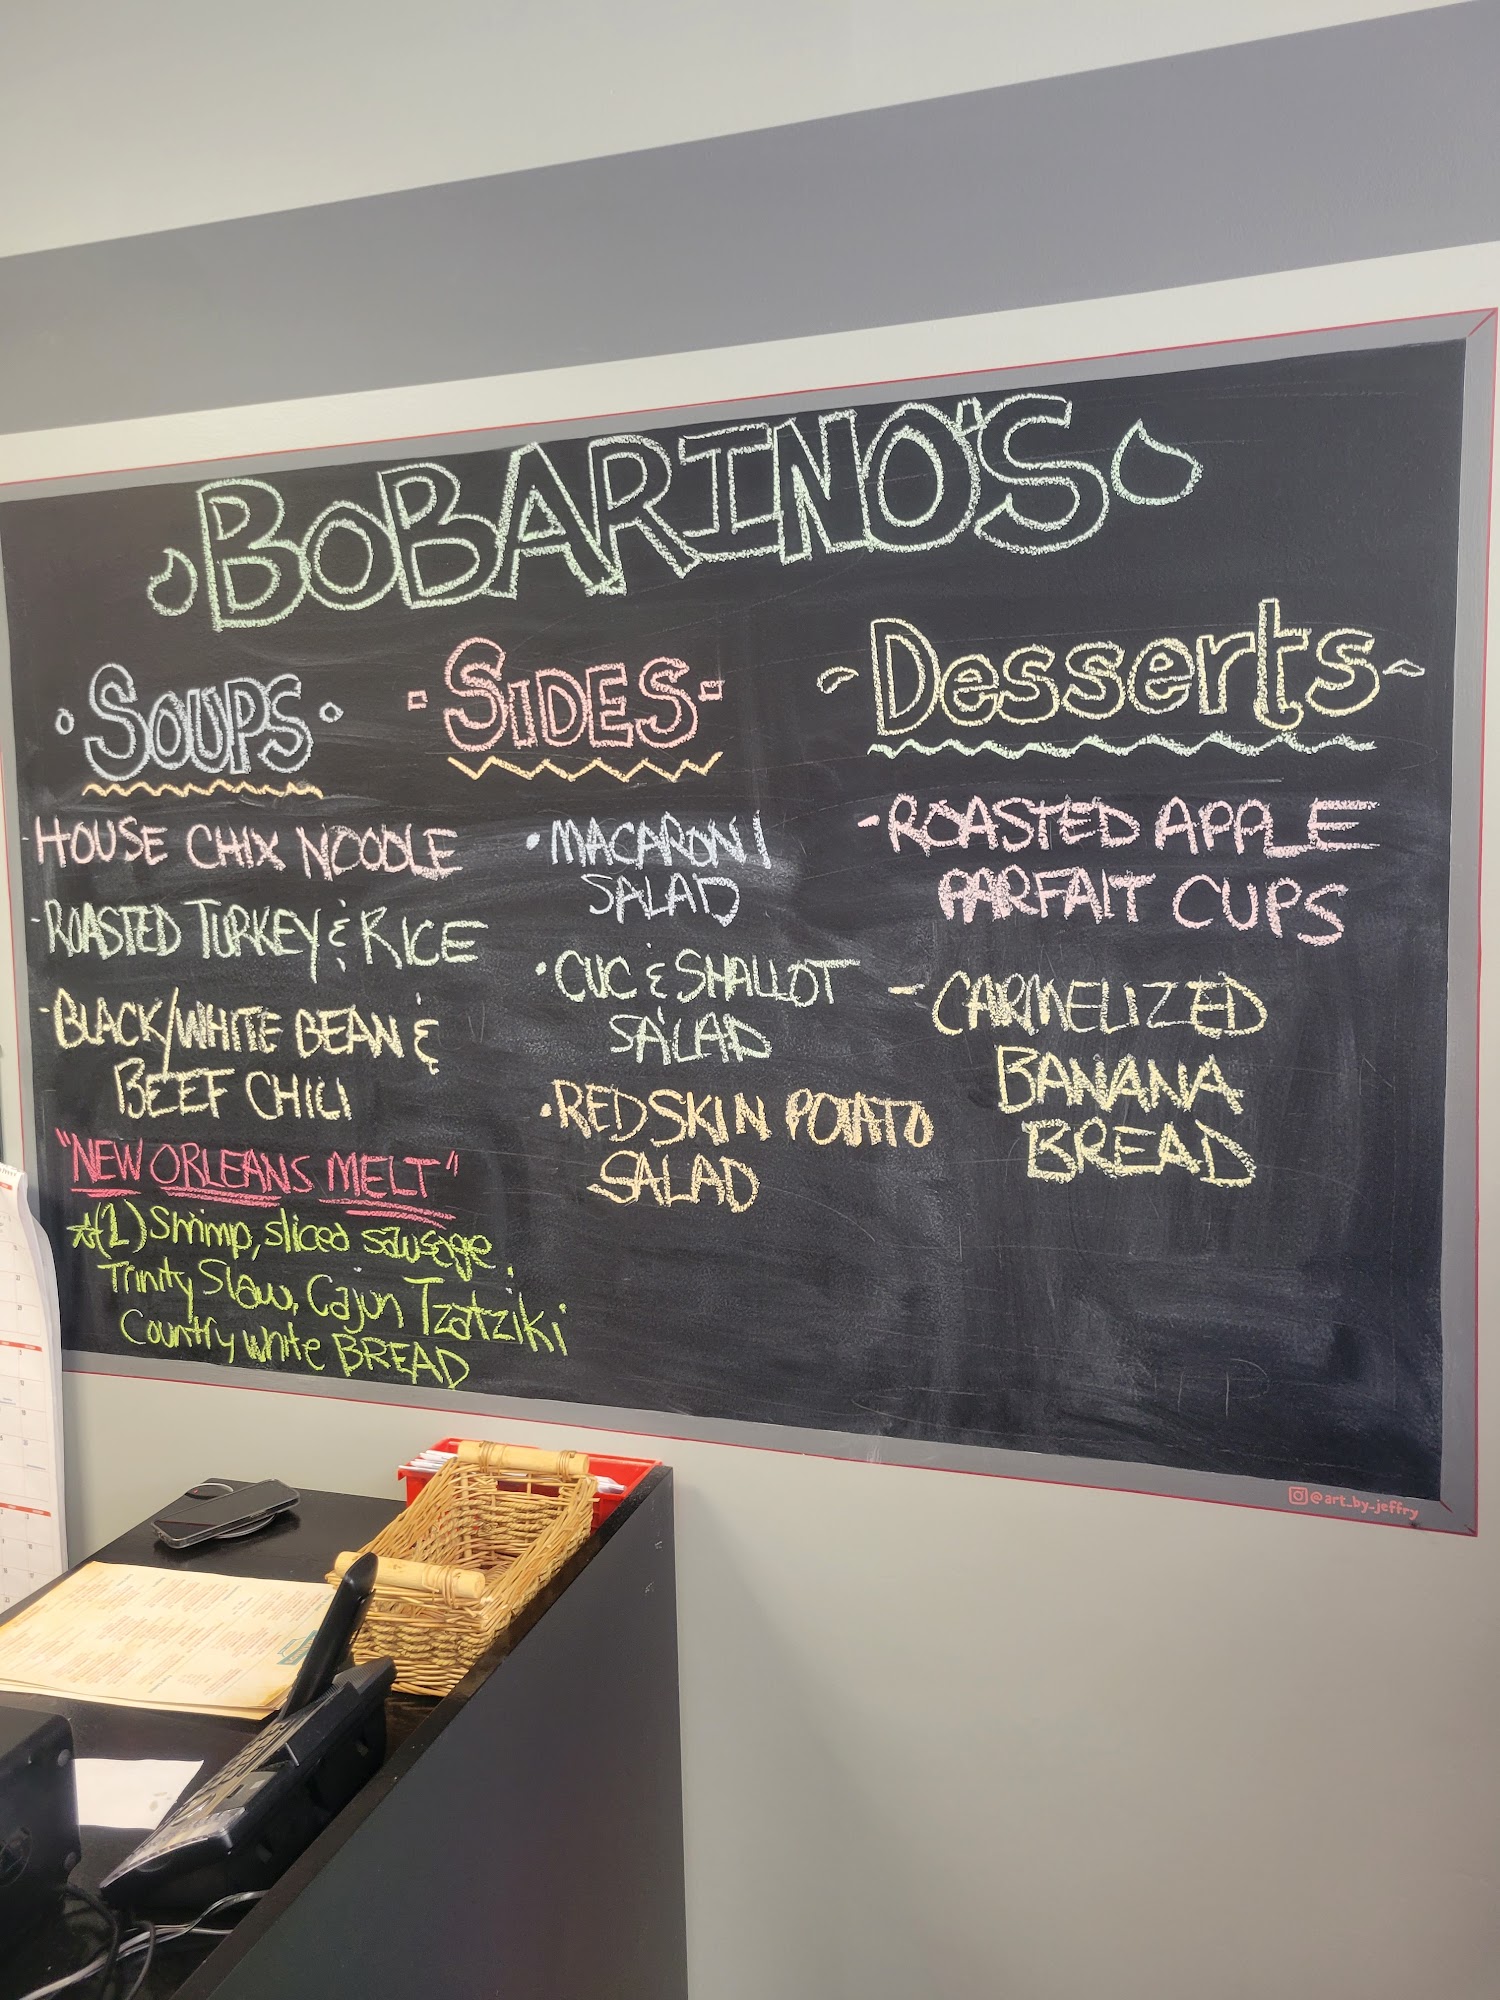 BOBARINO'S
SOUPS
- HOUSE CHIX NOODLE
- ROASTED TURKEY & RICE
- BLACK/WHITE BEAN &
BEEF CHILI
"NEW ORLEANS MELT"
☆(1) Shrimp, sliced sausage,
Trinity Slaw, Cajun Tzatziki
Country white BREAD
SIDES
• MACARONI
SALAD
• CUC & SHALLOT
SALAD
• REDSKIN POTATO
SALAD
Desserts
- ROASTED APPLE
PARFAIT CUPS
- CARMELIZED
BANANA
BREAD
@art_by_jeffry